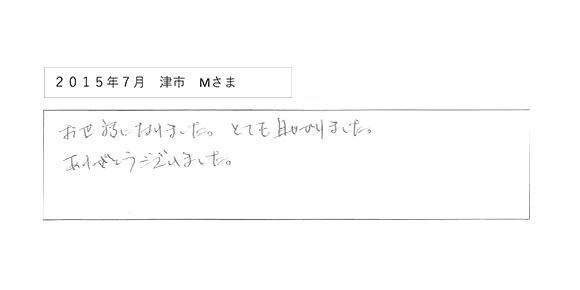 ２０１５年７月　津市　Mさま
お世話になりました。とても助かりました。
ありがとうございました。